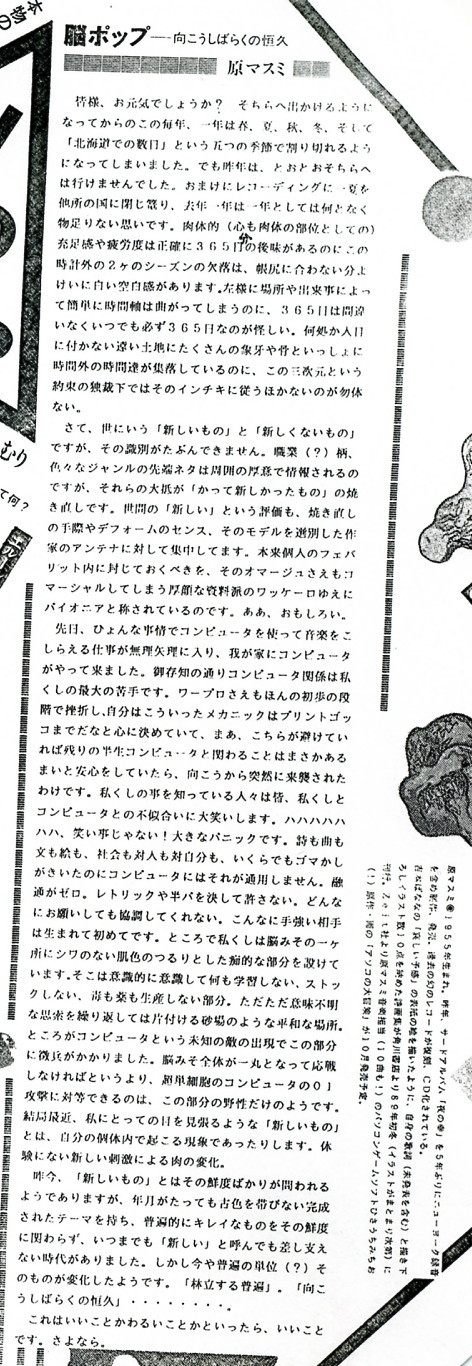 本物の
脳ポップ──向こうしばらくの恒久
原マスミ
皆様、お元気でしょうか？　そちらへ出かけるように
なってからのこの毎年、一年は春、夏、秋、冬、そして
「北海道での数日」という五つの季節で割り切れるよう
になってしまいました。でも昨年は、とおとおそちらへ
は行けませんでした。おまけにレコーディングに一夏を
他所の国に閉じ篭り、去年一年は一年としては何となく
物足りない思いです。肉体的（心も肉体の部位としての）
充足感や疲労度は正確に３６５日分の後味があるのにこの
時計外の２ヶのシーズンの欠落は、帳尻に合わない分よ
けいに白い空白感があります。左様に場所や出来事によっ
て簡単に時間軸は曲がってしまうのに、３６５日は間違
いなくいつでも必ず３６５日なのが怪しい。何処か人目
に付かない遠い土地にたくさんの象牙や骨といっしょに
時間外の時間達が集落しているのに、この三次元という
約束の独裁下ではそのインチキに従うほかないのが勿体
ない。
さて、世にいう「新しいもの」と「新しくないもの」
ですが、その識別がたぶんできません。職業（？）柄、
色々なジャンルの先端ネタは周囲の厚意で情報されるの
ですが、それらの大抵が「かって新しかったもの」の焼
き直しです。世間の「新しい」という評価も、焼き直し
の手際やデフォームのセンス、そのモデルを選別した作
家のアンテナに対して集中してます。本来個人のフェバ
リット内に封じておくべきを、そのオマージュさえもコ
マーシャルしてしまう厚顔な資料派のワッケーロゆえに
パイオニアと称されているのです。ああ、おもしろい。
先日、ひょんな事情でコンピュータを使って音楽をこ
しらえる仕事が無理矢理に入り、我が家にコンピュータ
がやって来ました。御存知の通りコンピュータ関係は私
くしの最大の苦手です。ワープロさえもほんの初歩の段
階で挫折し、自分はこういったメカニックはプリントゴッ
コまでだなと心に決めていて、まあ、こちらが避けてい
れば残りの半生コンピュータと関わることはまさかある
まいと安心をしていたら、向こうから突然に来襲された
わけです。私くしの事を知っている人々は皆、私くしと
コンピュータとの不似合いに大笑いします。ハハハハハハ
ハハ、笑い事じゃない！大きなパニックです。詩も曲も
文も絵も、社会も対人も対自分も、いくらでもゴマかし
がきいたのにコンピュータにはそれが通用しません。融
通がゼロ。レトリックや半パを決して許さない。どんな
にお願いしても協調してくれない。こんなに手強い相手
は生まれて初めてです。ところで私くしは脳みその一ヶ
所にシワのない肌色のつるりとした痴的な部分を設けて
います。そこは意識的に意識して何も学習しない、ストッ
クしない、毒も薬も生産しない部分。ただただ意味不明
な思索を繰り返しては片付ける砂場のような平和な場所。
ところがコンピュータという未知の敵の出現でこの部分
に徴兵がかかりました。脳みそ全体が一丸となって応戦
しなければというより、超単細胞のコンピュータの０１
攻撃に対等できるのは、この部分の野性だけのようです。
結局最近、私にとっての目を見張るような「新しいもの」
とは、自分の個体内で起こる現象であったりします。体
験にない新しい刺激による肉の変化。
昨今、「新しいもの」とはその鮮度ばかりが問われる
ようでありますが、年月がたっても古色を帯びない完成
されたテーマを持ち、普遍的にキレイなものをその鮮度
に関わらず、いつまでも「新しい」と呼んでも差し支え
ない時代がありました。しかし今や普遍の単位（？）そ
のものが変化したようです。「林立する普遍」。「向こ
うしばらくの恒久」・・・・・・・・。
これはいいことかわるいことかといったら、いいこと
です。さよなら。
原マスミ●1955年生まれ。昨年、サードアルバム『夜の幸』を5年ぶりにニューヨーク録音
を含め制作、発売。過去の幻のレコードが復刻、CD化されている。
吉本ばななの「哀しい予感」の表紙の絵を描いたように、自身の歌詞（未発表を含む）と描き下
ろしイラスト数10点を納めた詩画集が角川書店より89年初冬（イラストがまとまり次第）に
刊行。社より原マスミ音楽担当（10曲も！）のパソコンゲームソフトひさうちみちお
（！）原作・画の「アソコの大冒険」が10月発売予定。
むり
て何？